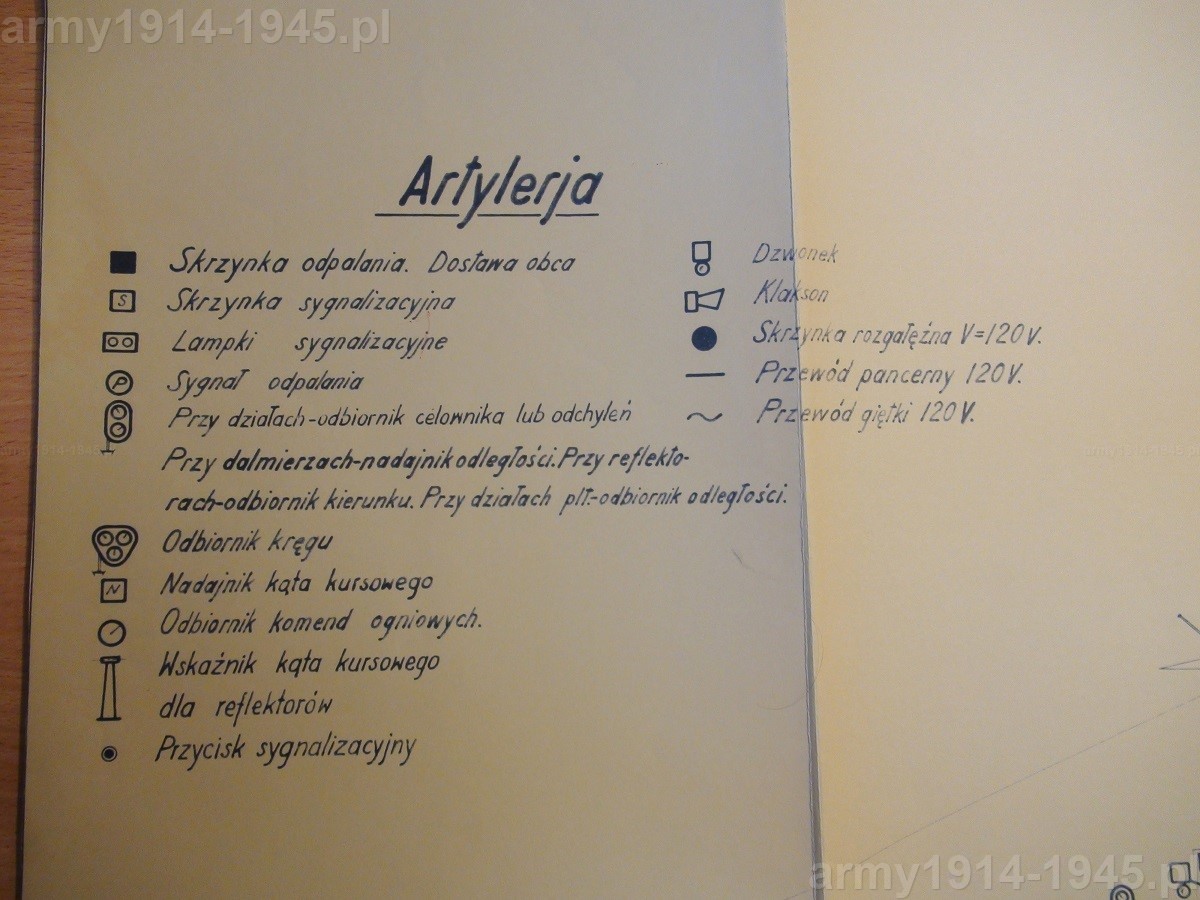 army1914-1945.pl
Artylerja
Skrzynka odpalania. Dostawa obca
S
Skrzynka sygnalizacyjna
Lampki sygnalizacyjne
P
Sygnał odpalania
Przy działach-odbiornik celownika lub odchyleń
Przy dalmierzach-nadajnik odległości. Przy reflekto-
rach-odbiornik kierunku. Przy działach plt.-odbiornik odległości.
Odbiornik kręgu
N
Nadajnik kąta kursowego
Odbiornik komend ogniowych.
Wskaźnik kąta kursowego
dla reflektorów
Przycisk sygnalizacyjny
Dzwonek
Klakson
Skrzynka rozgałęźna V=120V.
Przewód pancerny 120V.
Przewód giętki 120V.
army1914-1945.pl
army1914-1945.pl
army1914-1945.pl